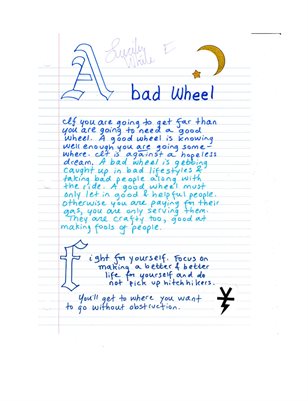 A bad Wheel
If you are going to get far than
you are going to need a good
wheel. A good wheel is knowing
well enough you are going some-
where. It is against a hopeless
dream. A bad wheel is getting
caught up in bad lifestyles &
taking bad people along with
the ride. A good wheel must
only let in good & helpful people.
otherwise you are paying for their
gas, you are only serving them.
They are crafty too, good at
making fools of people.
fight for yourself. Focus on
making a better & better
life for yourself and do
not pick up hitchhikers.
You'll get to where you want
to go without obstruction.